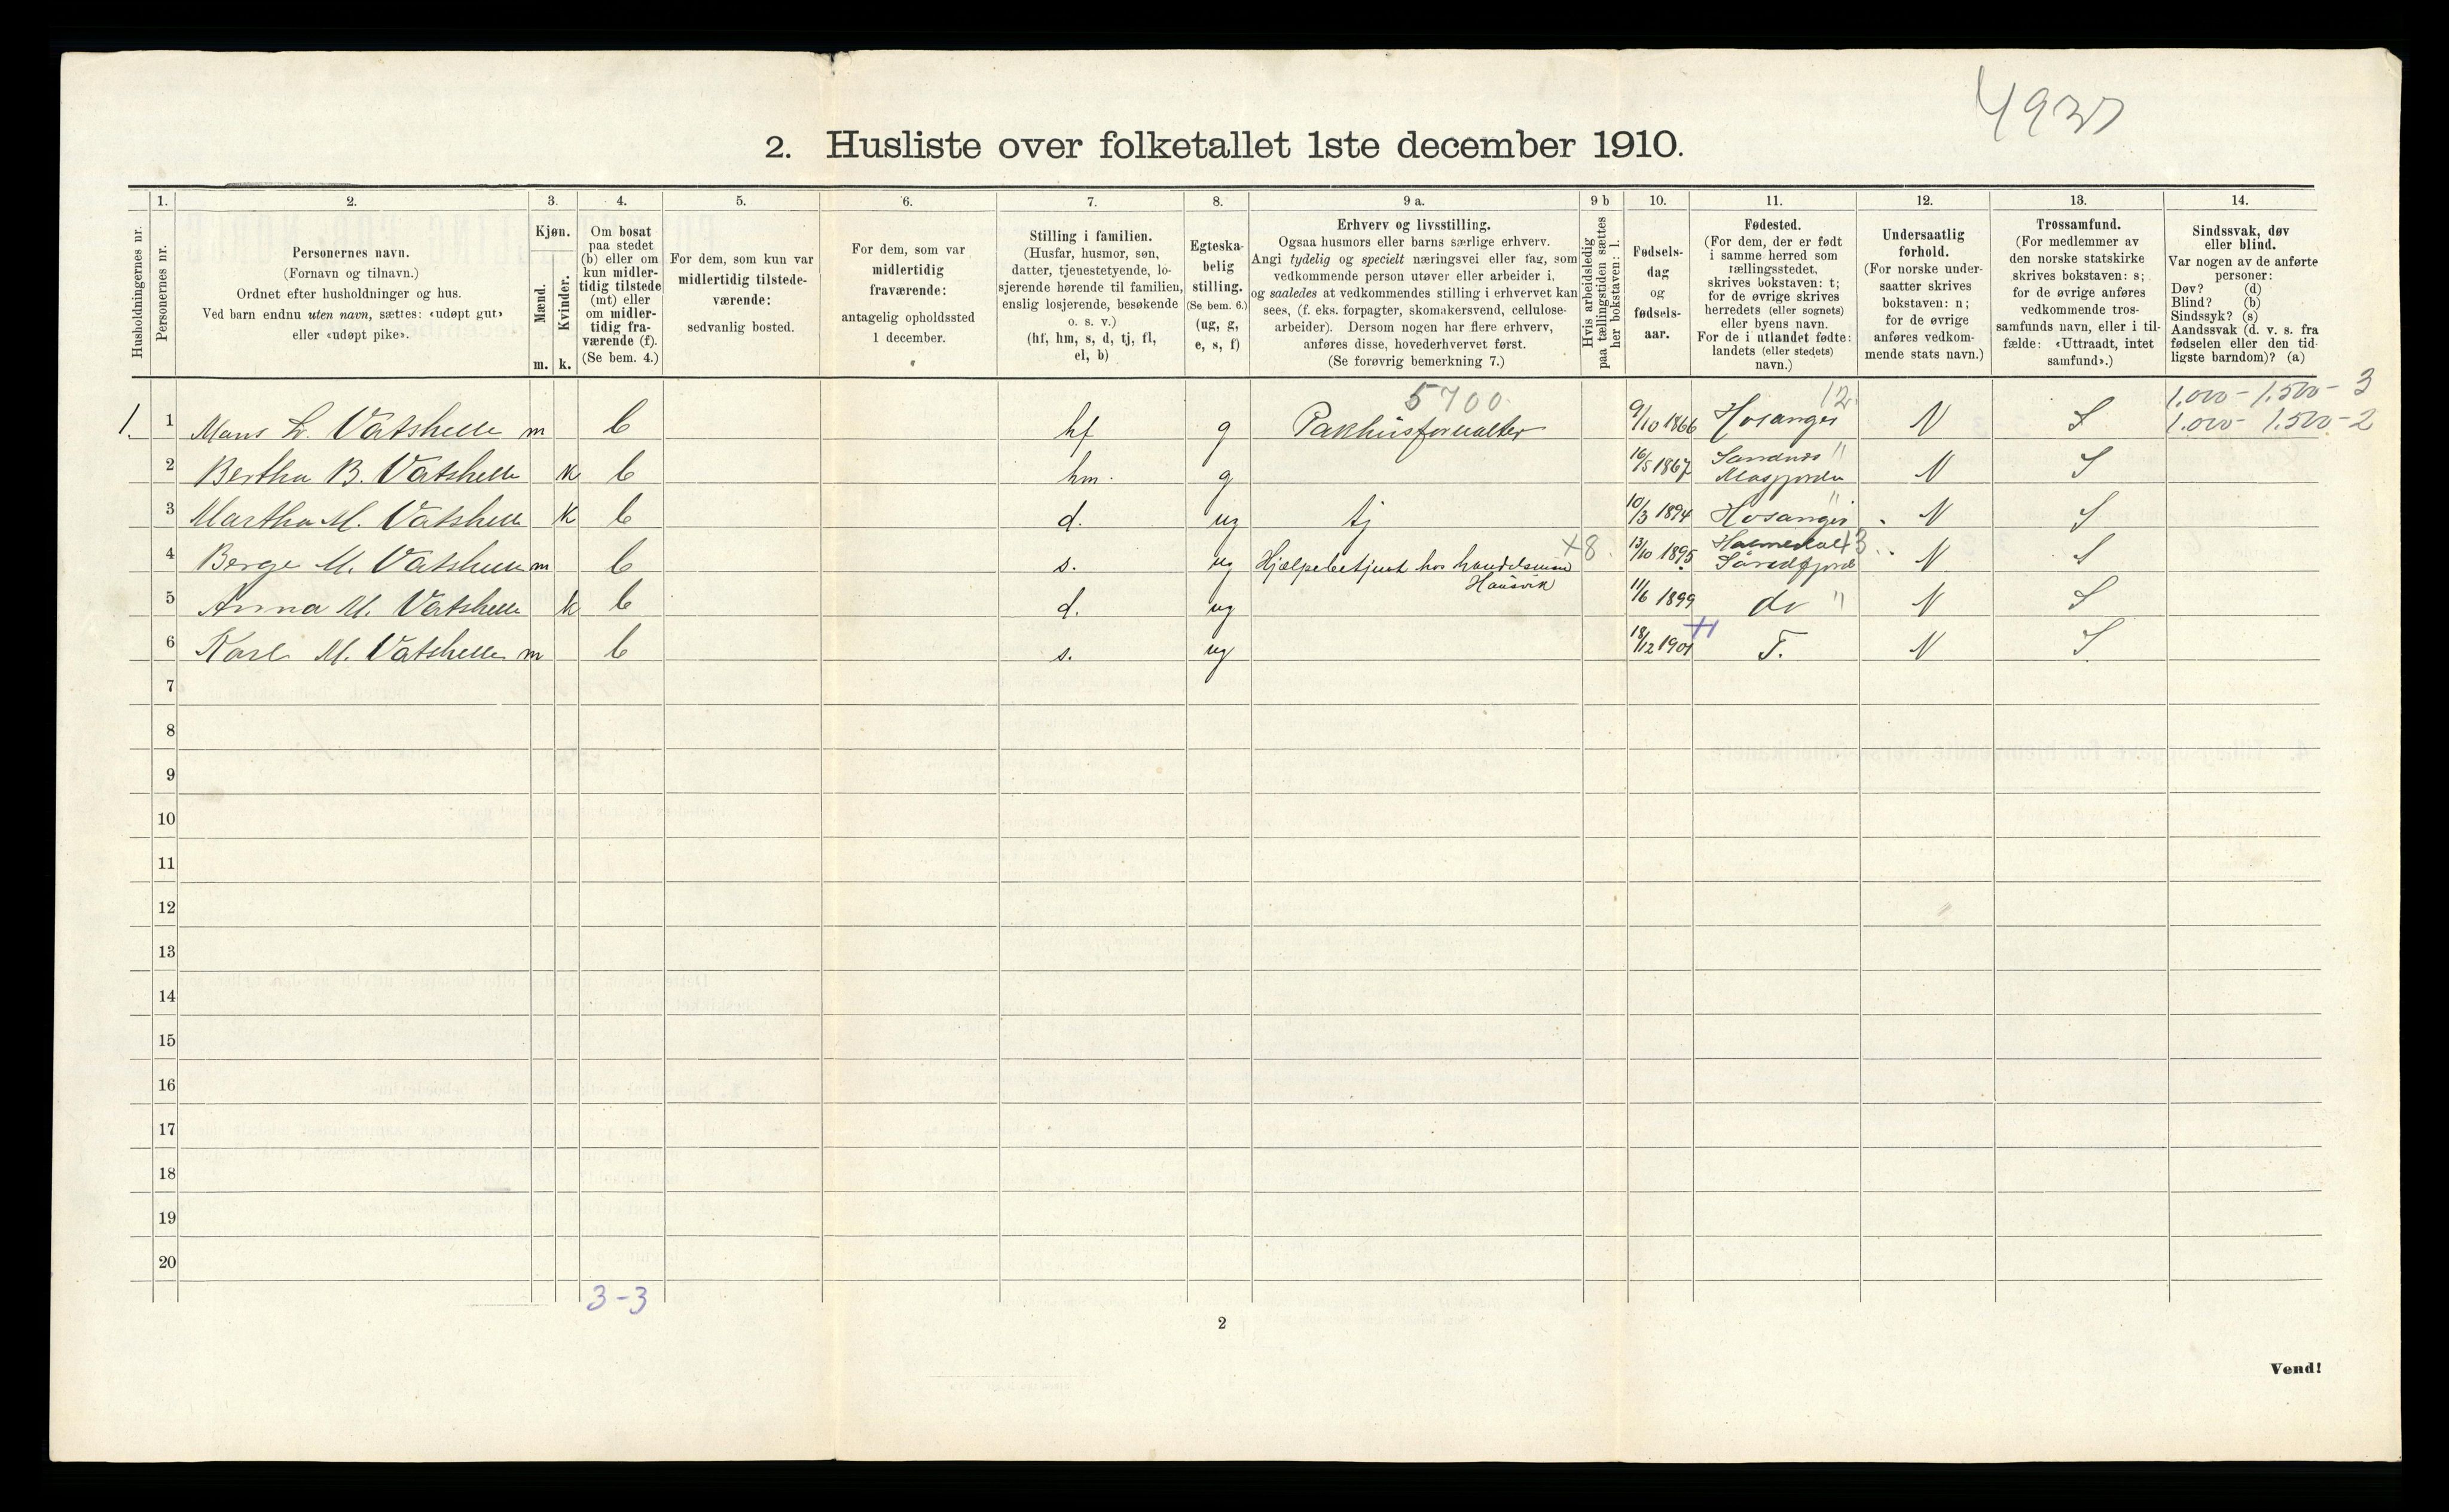 4937
2. Husliste over folketallet 1ste december 1910.
Husholdningernes nr.
1.
Personernes nr.
2.
Personernes navn.
(Fornavn og tilnavn.)
Ordnet efter husholdninger og hus.
Ved barn endnu uten navn, sættes: «udøpt gut»
eller «udøpt pike».
3.
Kjøn.
Mænd.
m.
Kvinder.
k.
4.
Om bosat
paa stedet
(b) eller om
kun midler-
tidig tilstede
(mt) eller
om midler-
tidig fra-
værende (f).
(Se bem. 4.)
5.
For dem, som kun var
midlertidig tilstede-
værende:
sedvanlig bosted.
6.
For dem, som var
midlertidig
fraværende:
antagelig opholdssted
1 december.
7.
Stilling i familien.
(Husfar, husmor, søn,
datter, tjenestetyende, lo-
sjerende hørende til familien,
enslig losjerende, besøkende
o. s. v.)
(hf, hm, s, d, tj, fl,
el, b)
8.
Egteska-
belig
stilling.
(Se bem. 6.)
(ug, g,
e, s, f)
9 a.
Erhverv og livsstilling.
Ogsaa husmors eller barns særlige erhverv.
Angi tydelig og specielt næringsvei eller fag, som
vedkommende person utøver eller arbeider i,
og saaledes at vedkommendes stilling i erhvervet kan
sees, (f. eks. forpagter, skomakersvend, cellulose-
arbeider). Dersom nogen har flere erhverv,
anføres disse, hovederhvervet først.
(Se forøvrig bemerkning 7.)
9 b
Hvis arbeidsledig
paa tællingstiden sættes
her bokstaven: l.
10.
Fødsels-
dag
og
fødsels-
aar.
11.
Fødested.
(For dem, der er født
i samme herred som
tællingsstedet,
skrives bokstaven: t;
for de øvrige skrives
herredets (eller sognets)
eller byens navn.
For de i utlandet fødte:
landets (eller stedets)
navn.)
12.
Undersaatlig
forhold.
(For norske under-
saatter skrives
bokstaven: n;
for de øvrige
anføres vedkom-
mende stats navn.)
13.
Trossamfund.
(For medlemmer av
den norske statskirke
skrives bokstaven: s;
for de øvrige anføres
vedkommende tros-
samfunds navn, eller i til-
fælde: «Uttraadt, intet
samfund».)
14.
Sindssvak, døv
eller blind.
Var nogen av de anførte
personer:
Døv? (d)
Blind? (b)
Sindssyk? (s)
Aandssvak (d. v. s. fra
fødselen eller den tid-
ligste barndom)? (a)
5700 12 1.000 - 1.500 - 3
1. 1 Mons L. Vatshelle m b hf g Pakhusforvalter 9/10 1866 Hosanger N S 1.000 - 1.500 - 2
2 Bertha B. Vatshelle k b hm. g 16/5 1867 Sandnes " Masfjorden N S
3 Martha M. Vatshelle k b d. ug tj 10/3 1894 Hosanger " N S
4 Berge M. Vatshelle m b s. ug Hjælpebetjent hos handelsmann Hausvik +8 13/10 1895 Holmedal 13 Söndfjord N S
5 Anna M. Vatshelle k b d. ug 11/6 1899 do " N S
6 Karl M. Vatshelle m b s. ug 18/12 1901 T. N S
7
8
9
10
11
12
13
14
15
16
17
18
19
20
3-3
2
Vend!